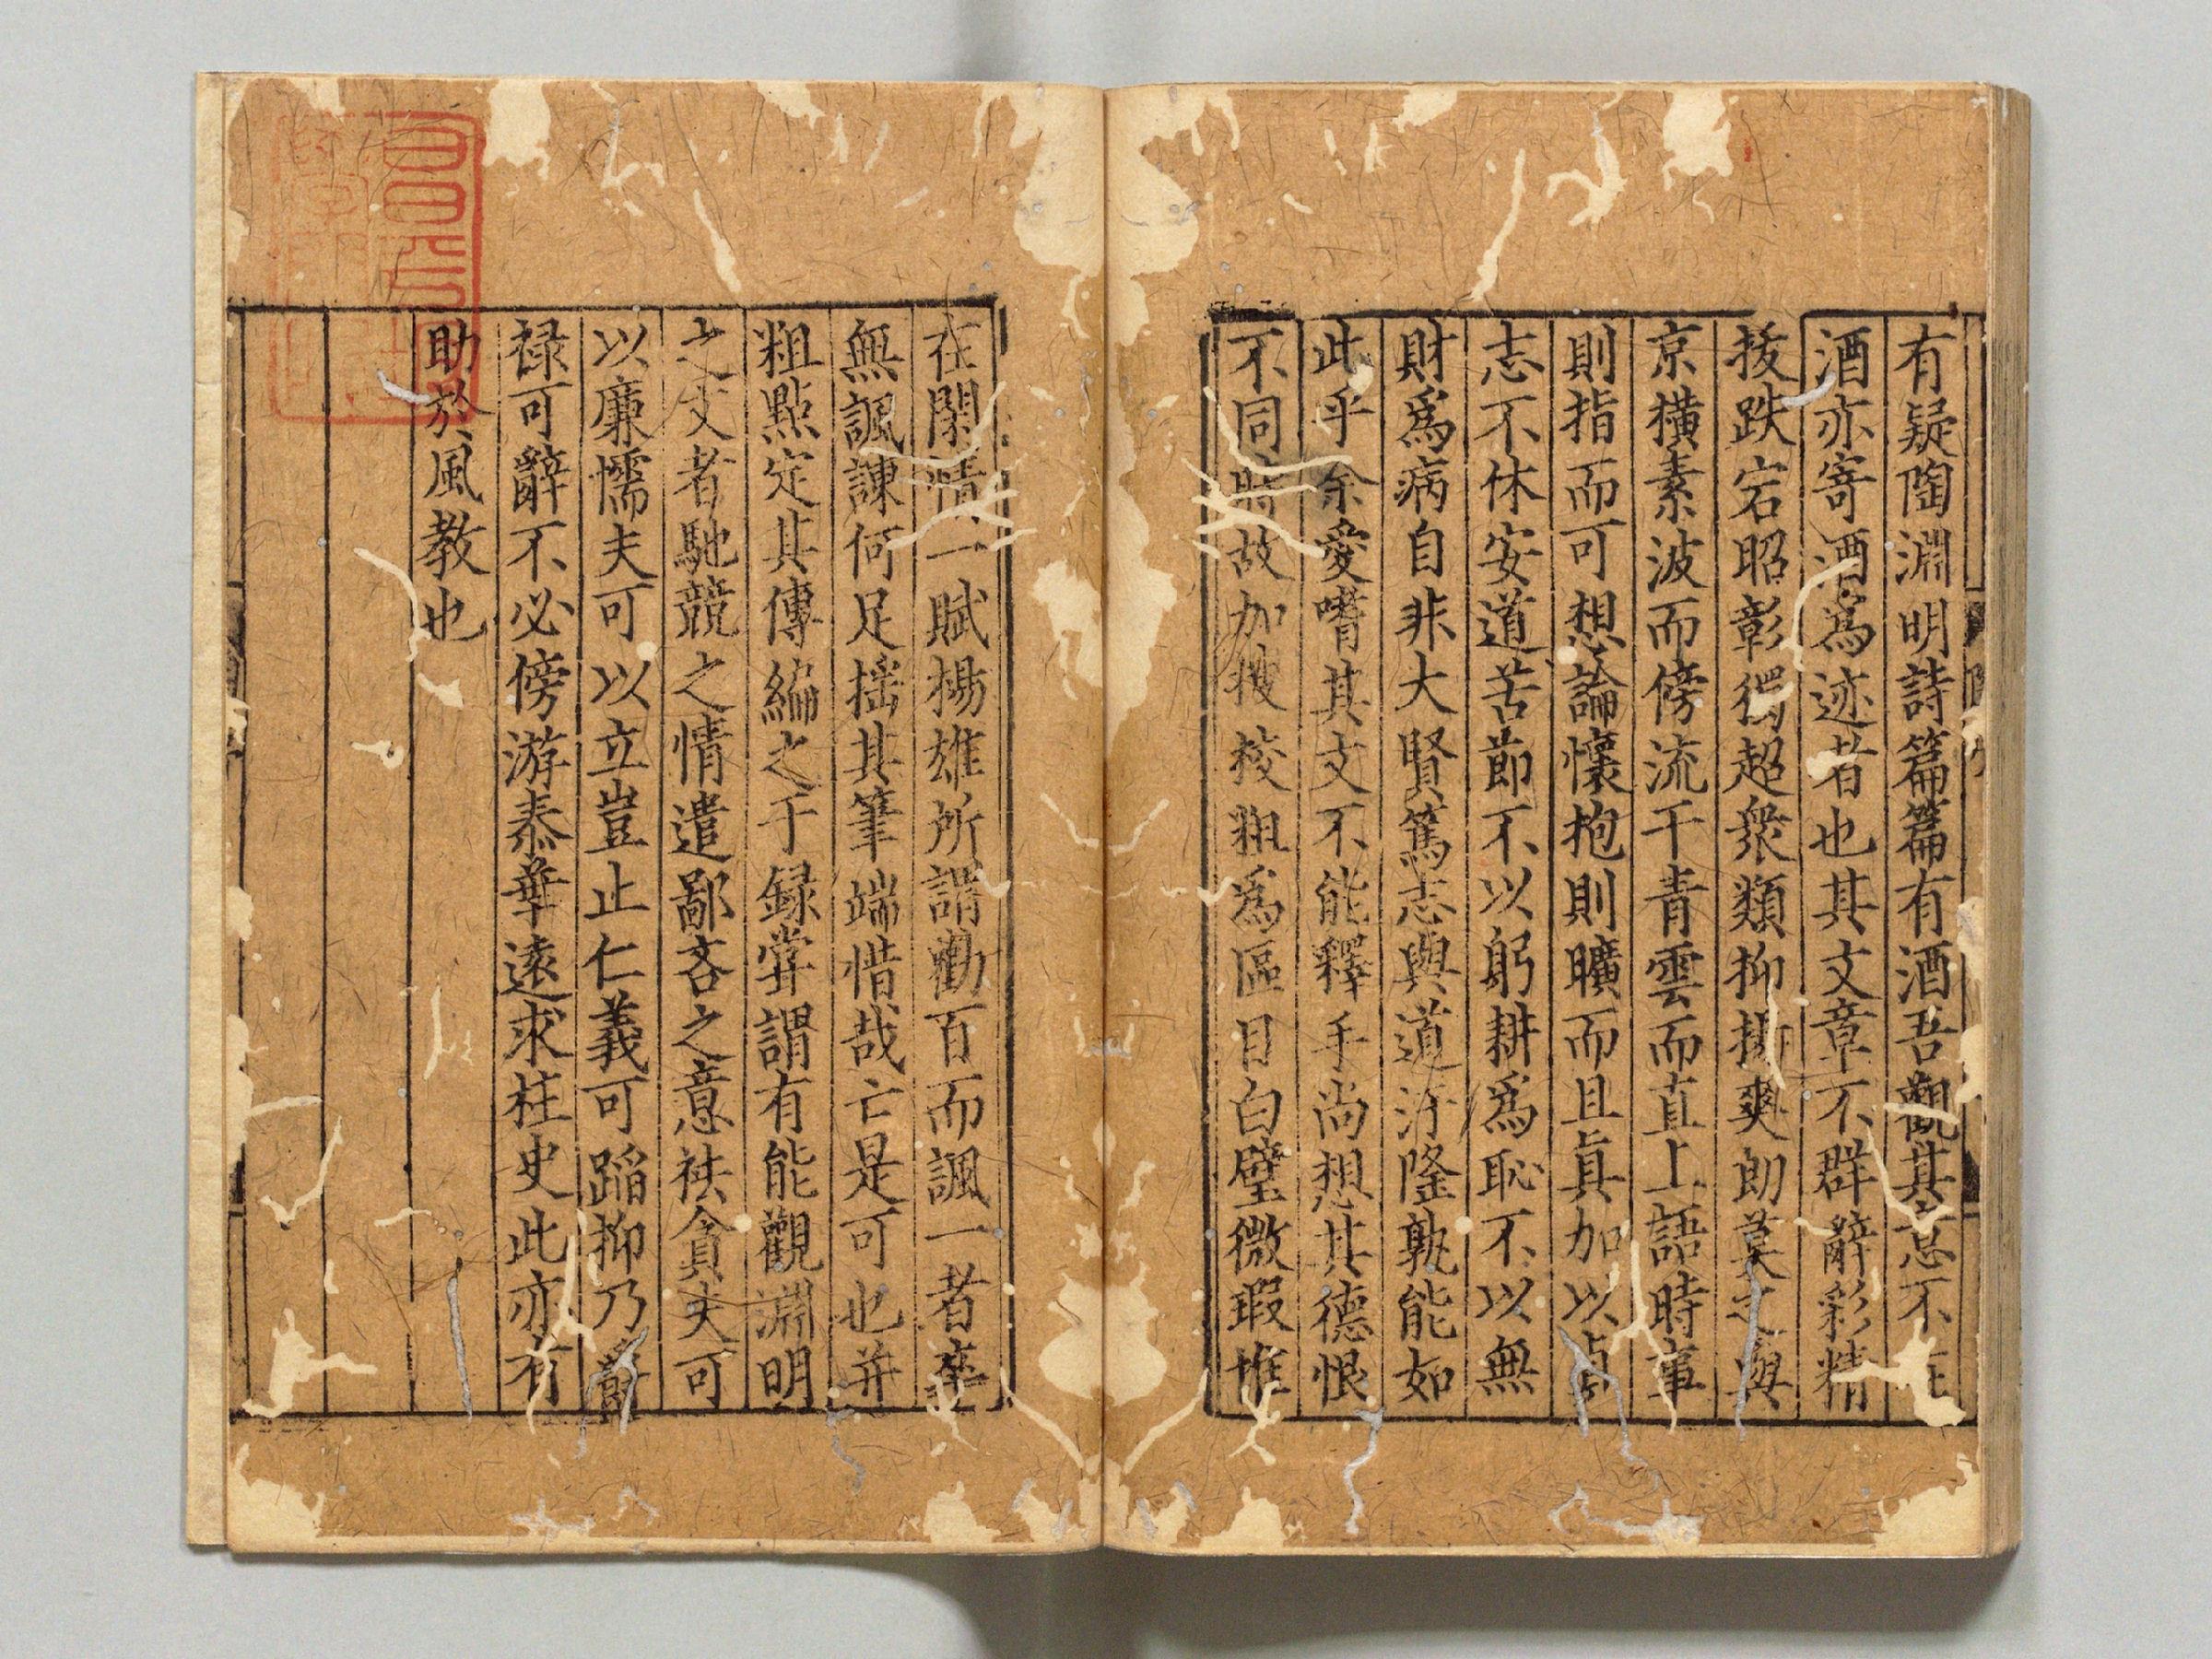 有疑陶淵明詩篇篇有酒吾觀其意不在
酒亦寄酒爲迹者也其文章不群辭彩精
拔跌宕昭彰獨超衆類抑揚爽朗莫之與
京橫素波而傍流干青雲而直上語時事
則指而可想論懷抱則曠而且真加以貞
志不休安道苦節不以躬耕爲恥不以無
財爲病自非大賢篤志與道汙隆孰能如
此乎余愛嗜其文不能釋手尚想其德恨
不同時故加搜校粗爲區目白璧微瑕惟
在閑情一賦揚雄所謂勸百而諷一者卒
無諷諫何足搖其筆端惜哉亡是可也并
粗點定其傳編之于録甞謂有能觀淵明
之文者馳競之情遣鄙吝之意祛貪夫可
以廉懦夫可以立豈止仁義可蹈抑乃爵
禄可辭不必傍游泰華遠求柱史此亦有
助於風教也